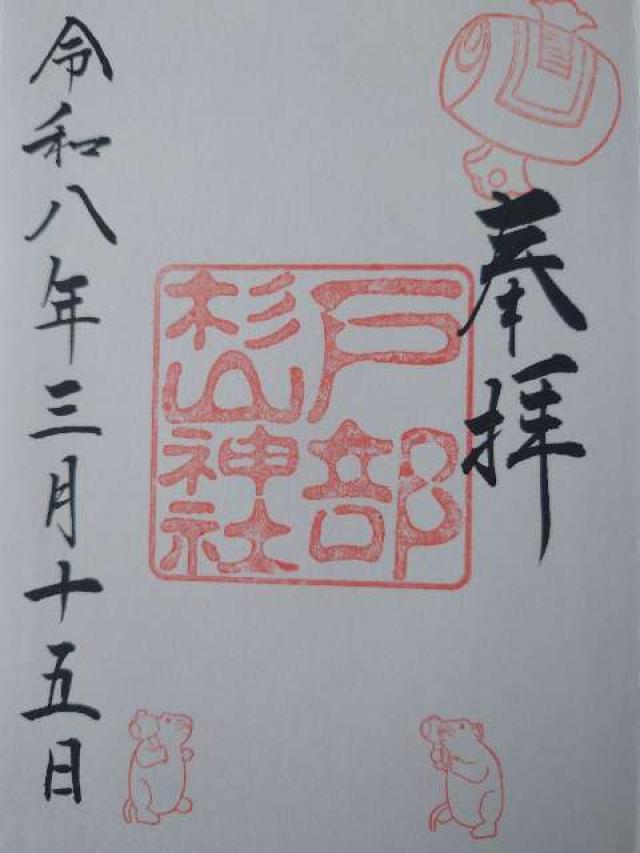 奉拝
戸部
杉山
神社
令和八年三月十五日